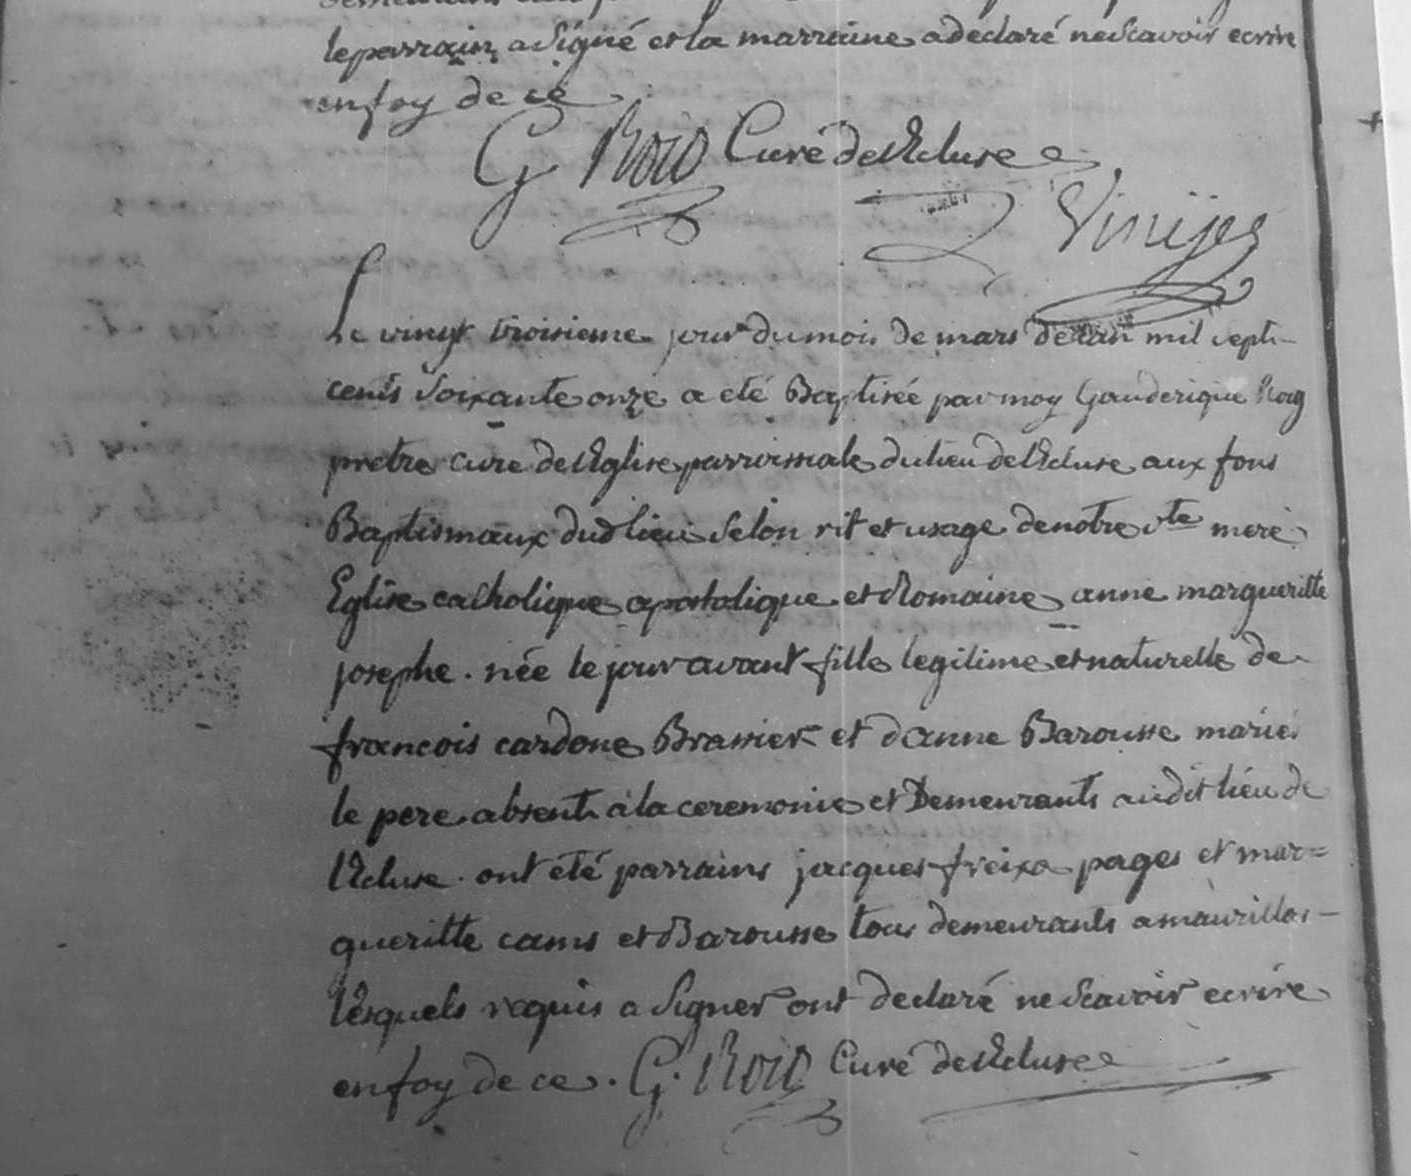 le parrain a signé et la marraine a declaré ne scavoir ecrire
en foy de ce
G Roig Curé de l'Ecluse
Vinÿes
Le vingt troisieme jour du mois de mars de l'an mil sept-
cents soixante onze a eté Baptisée par moy Gauderique Roig
pretre curé de l'Eglise parroissiale du lieu de l'Ecluse aux fons
Baptismaux dud lieu selon rit et usage de notre ste mere
Eglise catholique apostolique et Romaine anne margueritte
josephe. née le jour avant fille legitime et naturelle de
francois cardone Brassier et d'anne Barousse mariés
le pere absent à la ceremonie et Demeurants audit lieu de
l'Ecluse. ont eté parrains jacques freixa pages et mar=
gueritte cams et Barousse tous demeurants a maurillas-
lesquels requis a signer ont declaré ne scavoir ecrire
en foy de ce. G. Roig Curé de l'Ecluse